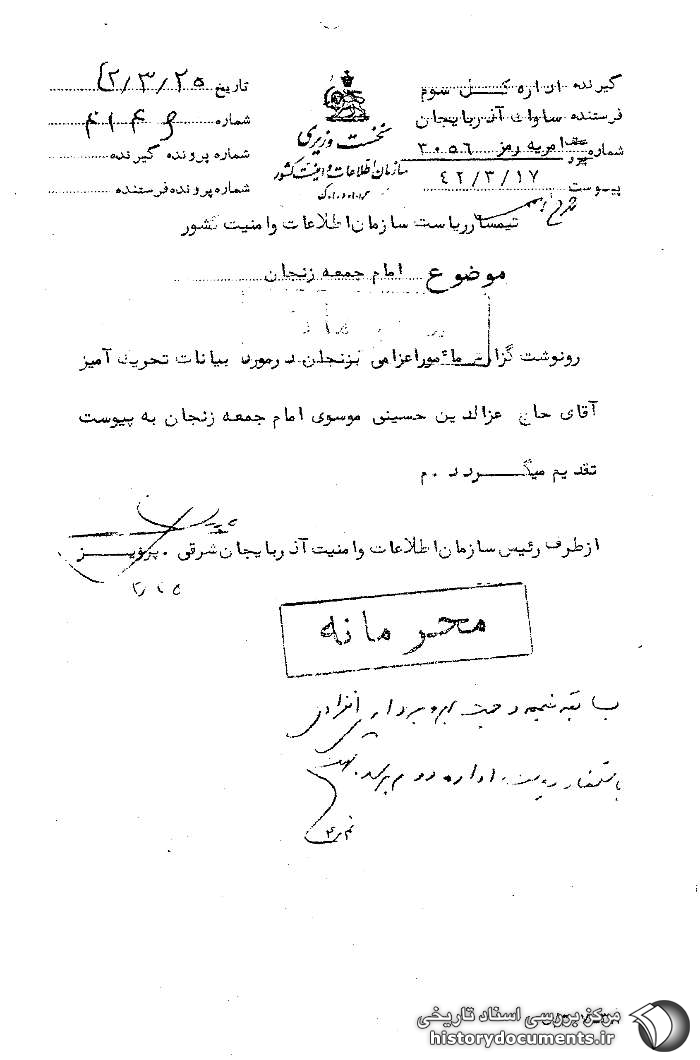 گیرنده اداره کل سوم
فرستنده ساواک آذربایجان
شماره عطف پیرو امریه رمز ۳۰۵۶
۴۲/۳/۱۷
پیوست
نخست وزیری
سازمان اطلاعات و امنیت کشور
س.ا.و.ا.ک
تاریخ ۴۲/۳/۲۵
شماره
شماره پرونده گیرنده
شماره پرونده فرستنده
تیمسار ریاست سازمان اطلاعات و امنیت کشور
موضوع امام جمعه زنجان
رونوشت مأمور اعزامی بزنجان در مورد بیانات تحریک آمیز
آقای حاج عزالدین حسینی موسوی امام جمعه زنجان به پیوست
تقدیم میگردد . م
از طرف رئیس سازمان اطلاعات و امنیت آذربایجان شرقی . پرویز
محرمانه
اداره دوم
مرکز بررسی اسناد تاریخی
historydocuments.ir